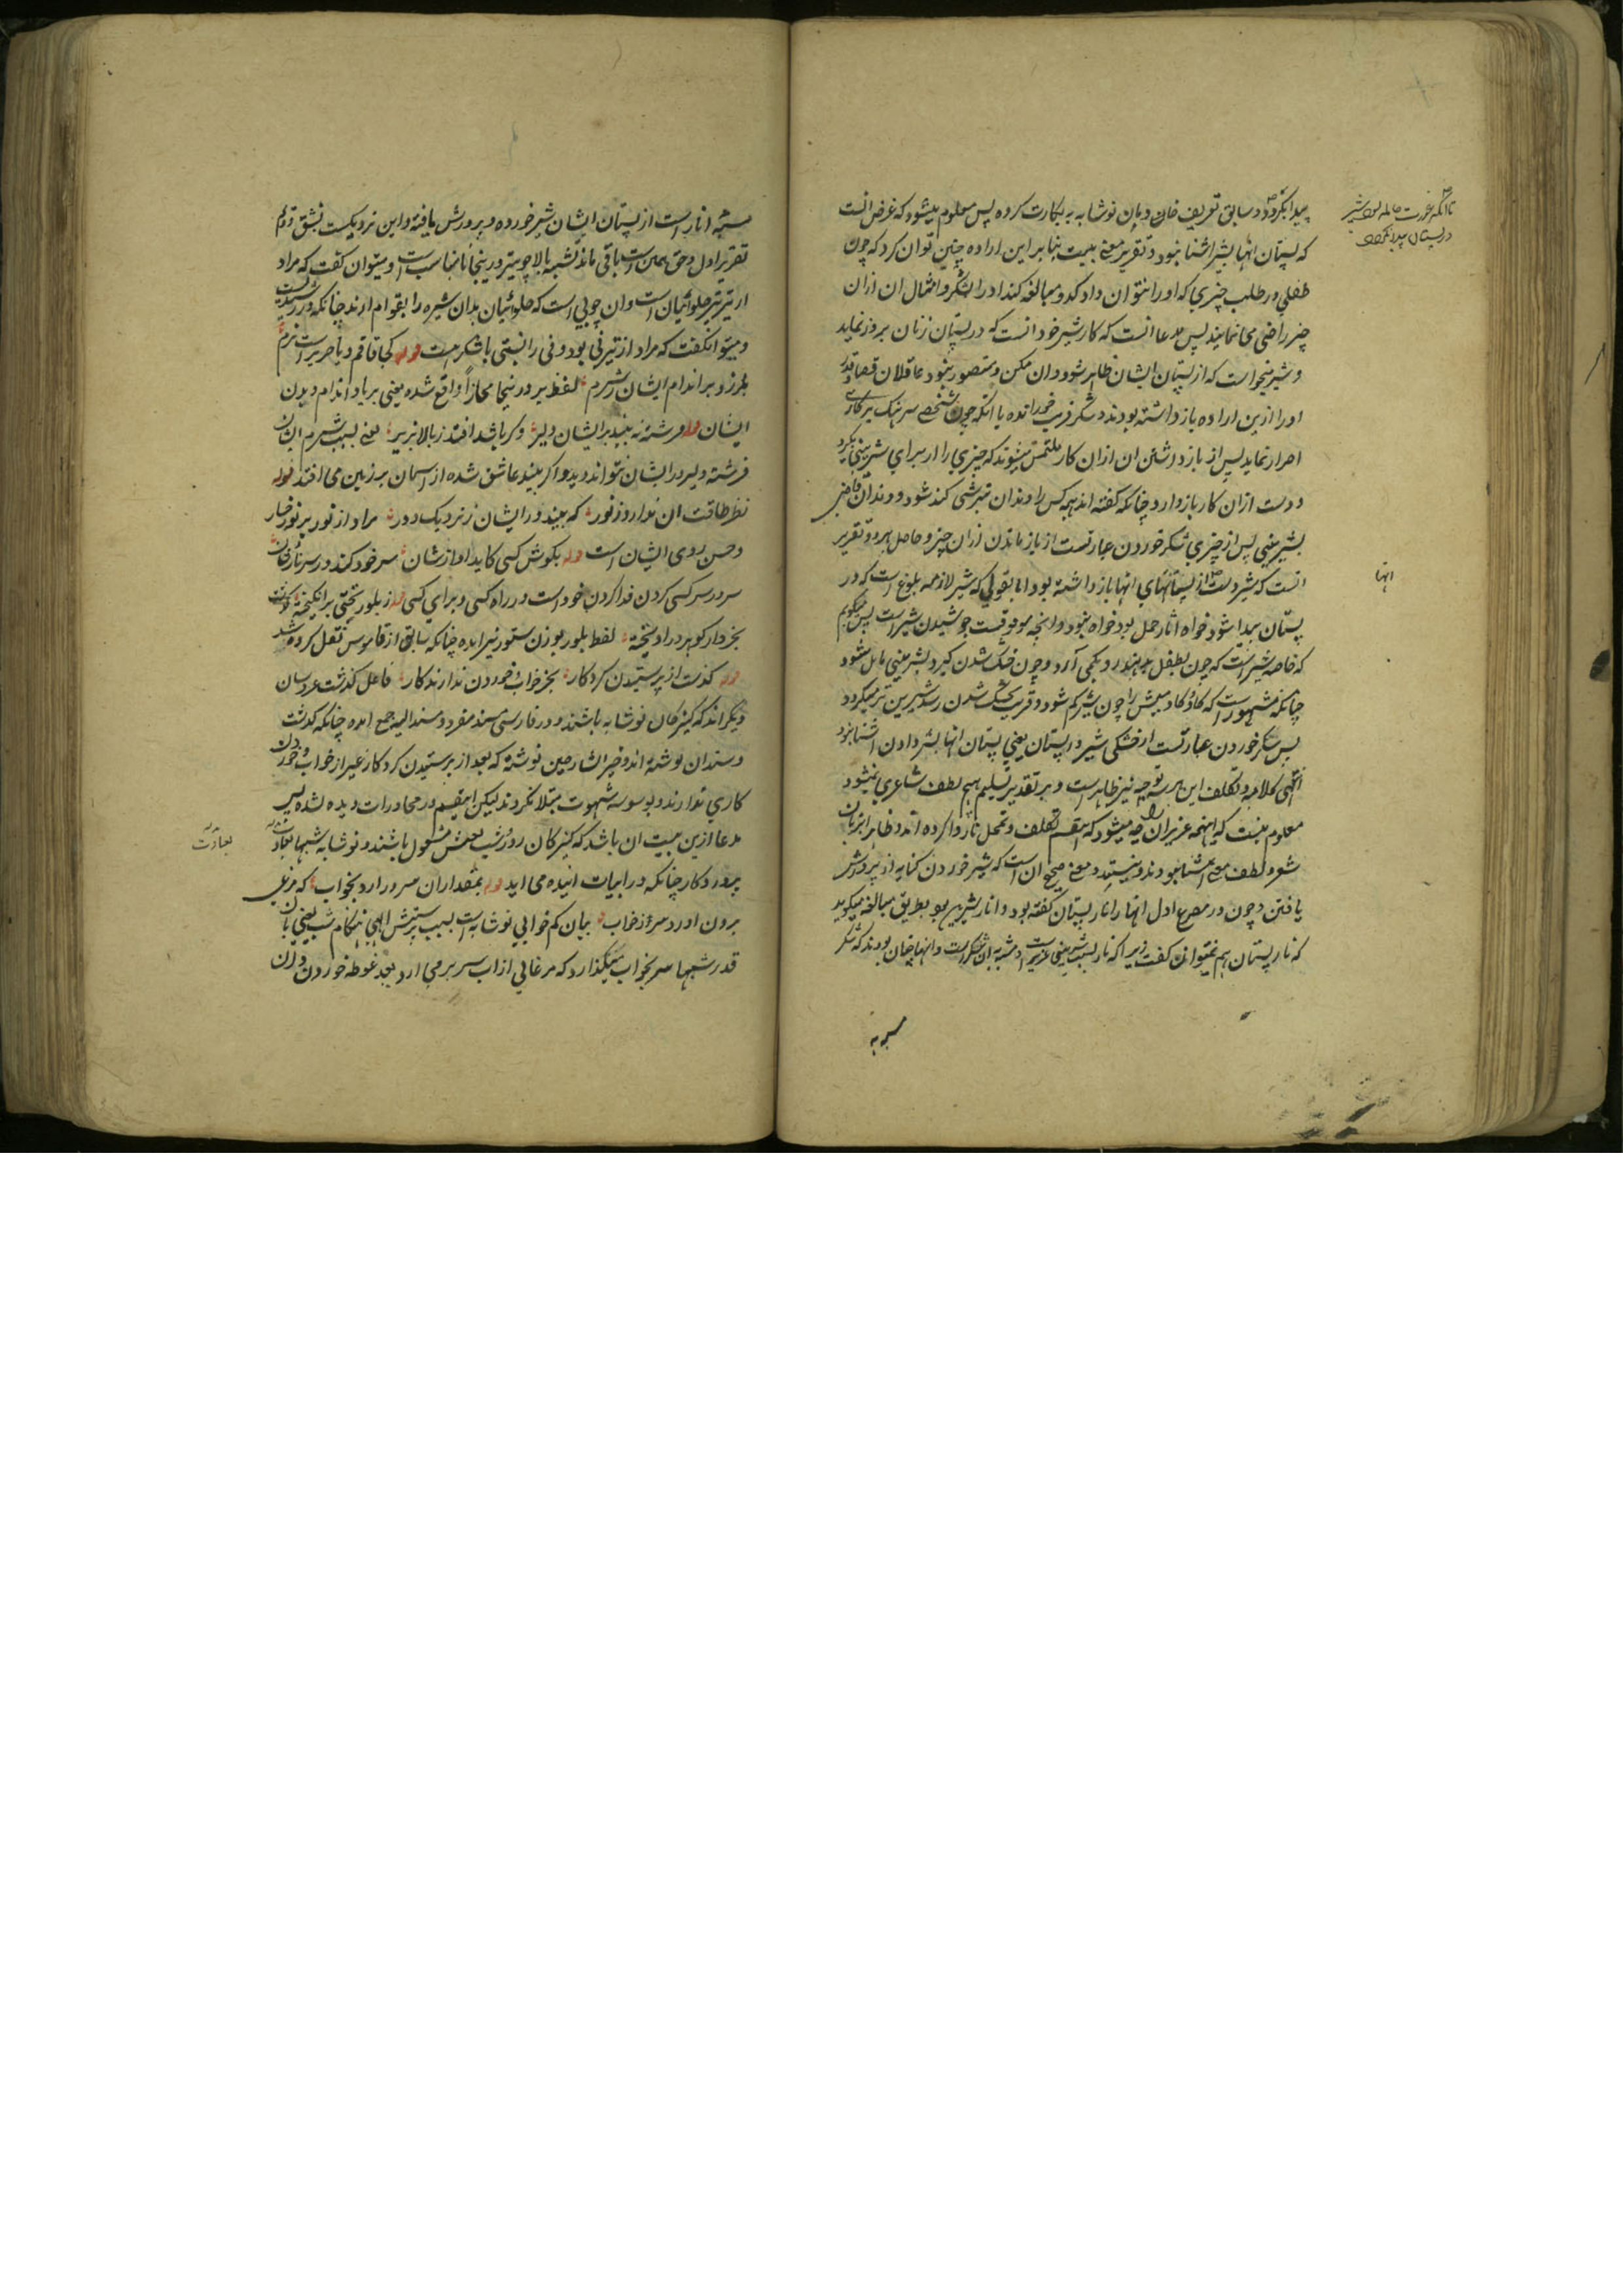 پیدا نگردد و سابق تعریف خان دبان نوشابه به بکارت کرده پس معلوم میشود که غرض انست
که پستان انها بشیر اشنا نبود و تقریر معنی بیت بنابر این اراده چنین توان کرد که چون
طفلی در طلب چیزی که او را نتوان داد کد و مبالغه کند او را بشکر و امثال ان ازان
چیز راضی می نمایند پس مدعا انست که کار شیر خود انست که در پستان زنان بروز نماید
و شیر میخواست که از پستان ایشان ظاهر شود و ان ممکن و متصور نبود عاقلان قضا و قدر
او را ازین اراده باز داشته بودند و شکر فریب خورانده یا انکه چون شخصی سر هنگ بر کاری
اصرار نماید پس از باز داشتن ان ازان کار ملتمس میشوند که چیزی را از برای شیرینی بگیرد
و دست ازان کار باز دارد چنانکه گفته اند همه کس را دندان بترشی کند شود و دندان قاضی
بشیرینی پس از چیزی شکر خوردن عبارتست از باز ماندن ازان چیز و حاصل هر دو تقریر
انست که شیر دست از پستانهای انها باز داشته بود اما بقولی که شیر لازمه بلوغ است که در
پستان پیدا شود خواه اثار حمل بود خواه نبود و انچه موقوفست جوشیدن شیر است پس میگویم
که خاصه شیر است که چون بطفل ندهند رو بکمی آرد و چون خشک شدن گیرد بشیرینی مایل شود
چنانکه مشهور است که گاو و گاومیش را چون شیر کم شود و قریب بخشک شدن رسد شیرین تر میگردد
پس شکر خوردن عبارتست از خشکی شیر در پستان یعنی پستان انها بشیر دادن اشنا نبود
انتهی کلامه و تکلف این هر سه توجیه نیز ظاهر است و بر تقدیر تسلیم هیچ لطف شاعری نمیشود
معلوم نیست که اینهمه عزیزان را چه میشود که اینقسم تکلف و تمحل را روا کرده اند و ظاهرا بزبان
شعر و لطف معنی اشنا نبودند و نیستند و معنی صحیح ان است که شیر خوردن کنایه از پرورش
یافتن و چون در مصرع اول انها را نار پستان گفته بود و انار شیرین بود بطریق مبالغه میگوید
که نار پستان هم نمیتوان گفت زیرا که نار بسبب شیرینی عزیز است و مشبه به ان شکر است و انها چنان بودند که شکر
مشبه به
تا انکه عورت حامله نبود شیر
در پستان پیدا نگردد
انها
مشبه انار است از پستان ایشان شیر خورده و پرورش یافته و این نزدیکست بشق دوم
تقریر اول و حق همین است باقی ماند تشبیه بالا چو تیر درینجا نامناسب است و میتوان گفت که مراد
از تیر تیر حلوائیان است و ان چوبی است که حلوائیان بدان شیره را بقوام ارند چنانکه در رشیدیست
و میتوانگفت که مراد از تیر نی بود و نی را نسبتی با شکر هست قوله کجا قاقم و یا حریر است نرم
بلرزد بر اندام ایشان ز شرم لفظ بر درینجا مجازا واقع شده یعنی بر یاد اندام دیدن
ایشان قوله فرشته نه بیند بر ایشان دلیر وگر باشد افتد ز بالا بزیر یعنی بسبب شرم ایشان
فرشته دلیر در ایشان نتواند دید و اگر بیند عاشق شده از اسمان بر زمین می افتد قوله
نظر طاقت ان ندارد ز نور که بیند در ایشان ز نزدیک و دور مراد از نور پر نور خسار
و حسن روی ایشان است قوله بگوش کسی کاید اواز شان سر خود کند در سر ناز شان
سر در سر کسی کردن فدا کردن خود است در راه کسی و برای کسی قوله ز بلور تختی برانگیخته
بخروار گوهر در اویخته لفظ بلور بوزن سنور نیز امده چنانکه سابق از قاموس نقل کرده شد
قوله گذشت از پرستیدن کردکار بجز خواب و خوردن ندارند کار فاعل گذشت عروسان
دیگر اند که کنیزکان نوشابه باشند و در فارسی مسند مفرد و مسند الیه جمع امده چنانکه گذشت
و سندان نوشته اند و خیر الشارحین نوشته که بعد از پرستیدن کردکار غیر از خواب و خوردن
کاری ندارند و بوسوسه شهوت مبتلا نگردند لیکن اینقسم در محاورات دیده نشده پس
مدعا ازین بیت ان باشد که کنیزکان روز و شب بعیش مشغول باشند و نوشابه شبها بعبادت
پروردکار چنانکه در ابیات اینده می اید قوله بمقدار ان سر در ارد بخواب که مرغی
برون اورد سر ز خواب بیان کم خوابی نوشابه است بسبب پرستش الهی هنگام شب یعنی بان
قدر شبها سر بخواب میگذارد که مرغابی از اب سر برمی ارد بعد غوطه خوردن دران
بعبادت